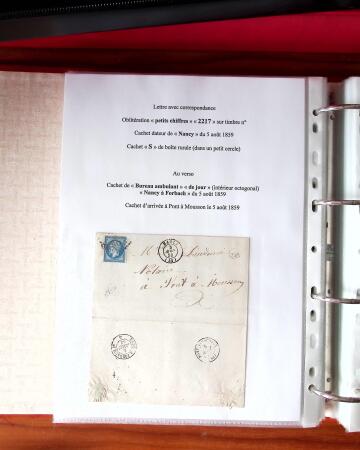 Lettre avec correspondance
Oblitération « petits chiffres » « 2217 » sur timbre n°
Cachet dateur de « Nancy » du 5 août 1859
Cachet « S » de boîte rurale (dans un petit cercle)
Au verso
Cachet de « Bureau ambulant » « de jour » (intérieur octagonal)
« Nancy à Forbach » du 5 août 1859
Cachet d'arrivée à Pont à Mousson le 5 août 1859
Notaire
à Pont à Mousson